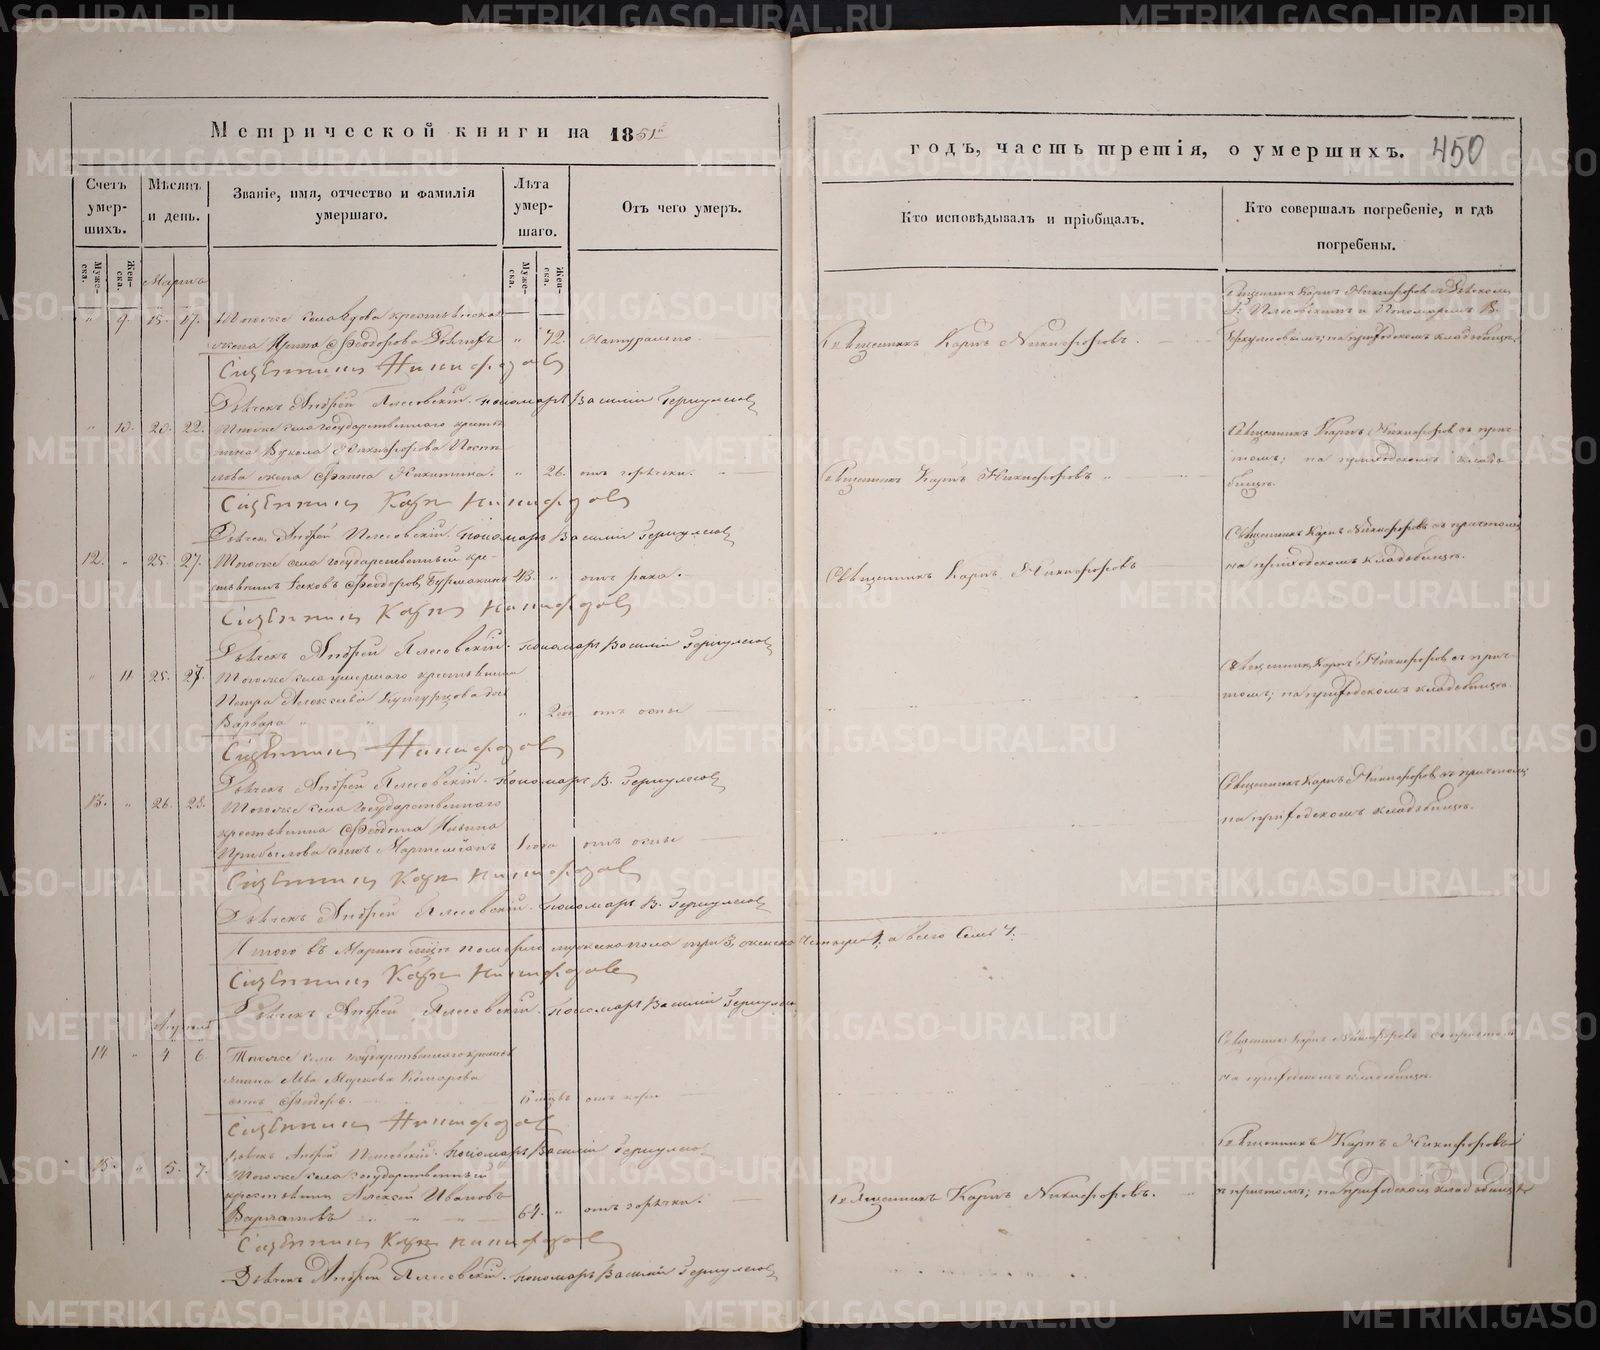 Метрической книги на 1851й
годъ, часть третія, о умершихъ. 450
Счетъ умер-шихъ.
Мѣсяцъ и день.
Званіе, имя, отчество и фамилія умершаго.
Лѣта умер-шаго.
Отъ чего умеръ.
Кто исповѣдывалъ и пріобщалъ.
Кто совершалъ погребеніе, и гдѣ погребены.
Муже-ска.
Жен-ска.
Муже-ска.
Жен-ска.
Мартъ
" 9. 15. 17. Тогоже села вдова крестьянская
жена Ирина Феодорова " 72. Натурально.
Священникъ Карпъ Никифоровъ.
Священникъ Никифоров
Дьячекъ Андрей Плесовскій. пономарь Василій
" 10. 20. 22. Тогоже села государственнаго кресть
янина Вукола Никифорова
жена Фаина Никитина. " 26. отъ горячки.
Священникъ Карпъ Никифоровъ
Священникъ Карпъ Никифоровъ съ прич-
томъ; на приходскомъ кладь
бищѣ.
Священник Карп Никифоров
Дьячек Андрей Плесовскій. пономарь Василій
12. " 25. 27. Тогоже села государственный кре-
стьянинъ Іаковъ Феодоровъ Бурмакинъ 43. " отъ рака.
Священникъ Карпъ Никифоровъ
Священникъ Карпъ Никифоровъ съ причтомъ
на приходскомъ кладьбищѣ.
Священник Карп Никифоров
Дьячекъ Андрей Плесовскій. пономарь Василій
" 11. 25. 27. Тогоже села умершаго крестьянина
Петра Алексѣева Кунгурцова дочь
Варвара " отъ оспы
Священникъ Карпъ Никифоровъ съ прич-
томъ; на приходскомъ кладьбищѣ.
Священник Никифоров
Дьячекъ Андрей Плесовскій. пономарь В.
13. " 26. 28. Тогоже села государственнаго
крестьянина Феодота
Прибылова сынъ 1 года отъ оспы
Священникъ Карпъ Никифоровъ съ причтомъ
на приходскомъ кладьбищѣ.
Священник Карп Никифоров
Дьячекъ Андрей Плесовскій. пономарь В.
Итого въ Мартѣ мцѣ померло мужеска пола три 3, женска четыре 4, а всего семь 7.
Священник Карп Никифоров
Дьячекъ Андрей Плесовскій. пономарь Василій
Апрель
14 " 4 6. Тогоже села государственнаго кресть
янина Льва Маркова Комарова
сынъ Феодоръ. отъ кори
Священникъ Карпъ Никифоровъ съ причтомъ
на приходскомъ кладьбищѣ.
Священник Никифоров
Дьячекъ Андрей Плесовскій. пономарь Василій
15. " 5. 7. Тогоже села государственный
крестьянинъ Алексѣй Ивановъ
Варлаковъ 64. " отъ горячки.
Священникъ Карпъ Никифоровъ.
Священникъ Карпъ Никифоровъ
съ причтомъ; на приходскомъ кладьбищѣ
Священник Карп Никифоров
Дьячекъ Андрей Плесовскій. пономарь Василій
METRIKI.GASO-URAL.RU